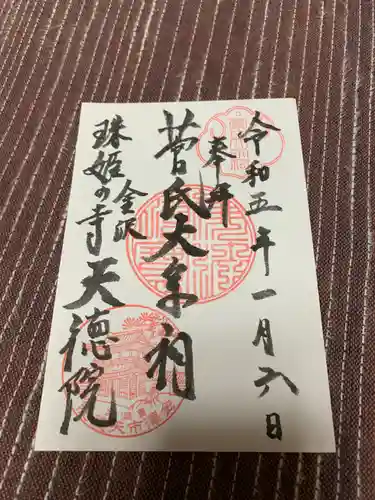 令和五年一月六日
奉拝
菅氏大乗祠
金沢
珠姫の寺天徳院